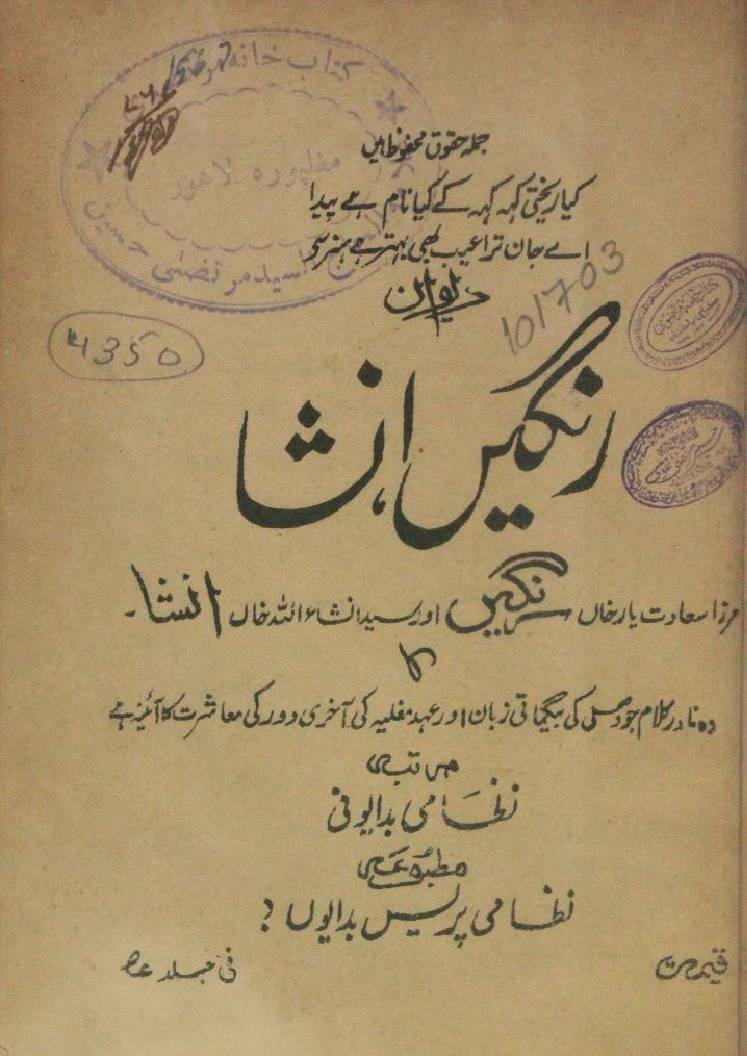 کتاب خانہ
مغلپورہ لاہور
سید مرتضیٰ حسین
جملہ حقوق محفوظ ہیں
کیا ریختی کہہ کہہ کے کیا نام ہے پیدا
اے جان ترا عیب بھی بہتر ہے ہنر سے
دیوان
101703
4350
رنگیں، انشا
مرزا سعادت یار خاں رنگیں اور سید انشاء اللہ خاں انشا۔
کا
وہ نادر کلام جو دھلی کی بیگماتی زبان اور عہد مغلیہ کی آخری دور کی معاشرت کا آئینہ ہے
مرتبہ
نظامی بدایونی
مطبوعہ
نظامی پریس بدایوں
قیمت فی جلد